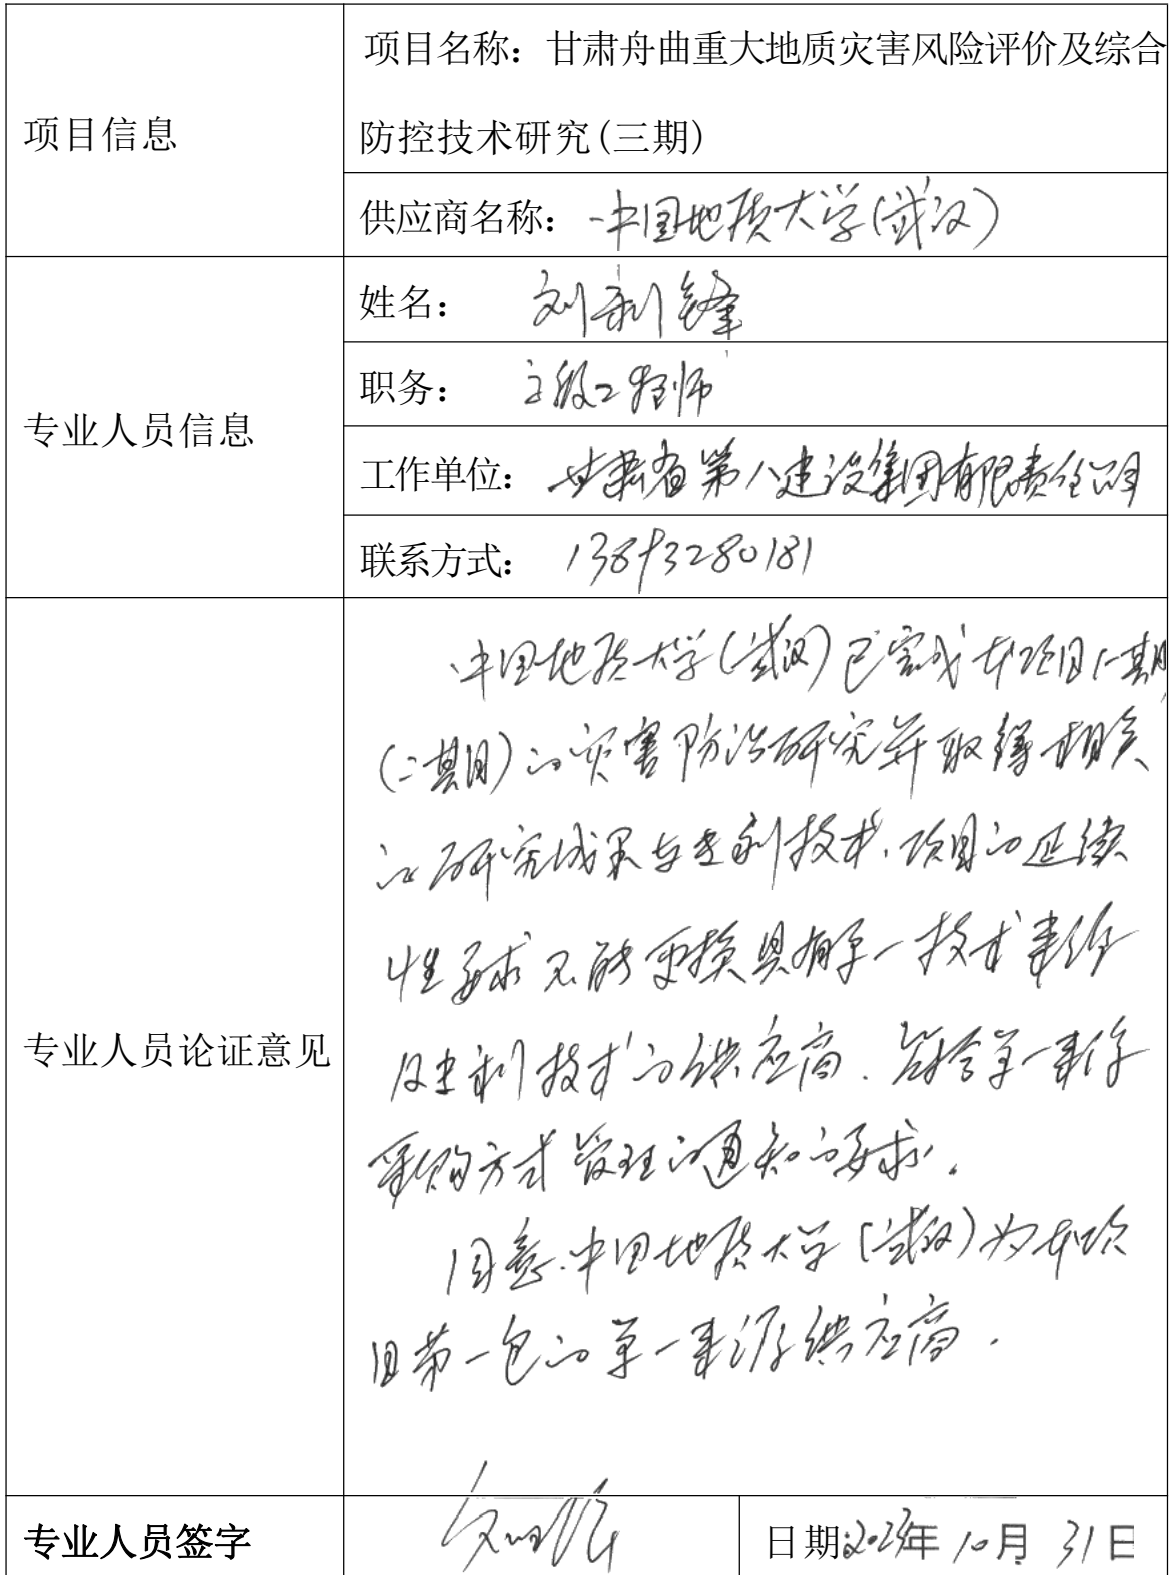 项目信息
项目名称：甘肃舟曲重大地质灾害风险评价及综合
防控技术研究(三期)
供应商名称：中国地质大学(武汉)
专业人员信息
姓名：刘利锋
职务：高级工程师
工作单位：甘肃省第八建设集团有限责任公司
联系方式：13893280181
专业人员论证意见
中国地质大学(武汉)已完成本项目(一期
(二期)的灾害防治研究并取得相关
的研究成果与专利技术,项目的延续
性要求不能更换具有单一技术来源
及专利技术的供应商.符合单一来源
采购方式管理的通知的要求.
同意中国地质大学(武汉)为本项
目第一包的单一来源供应商.
专业人员签字
日期:2023年10月31日